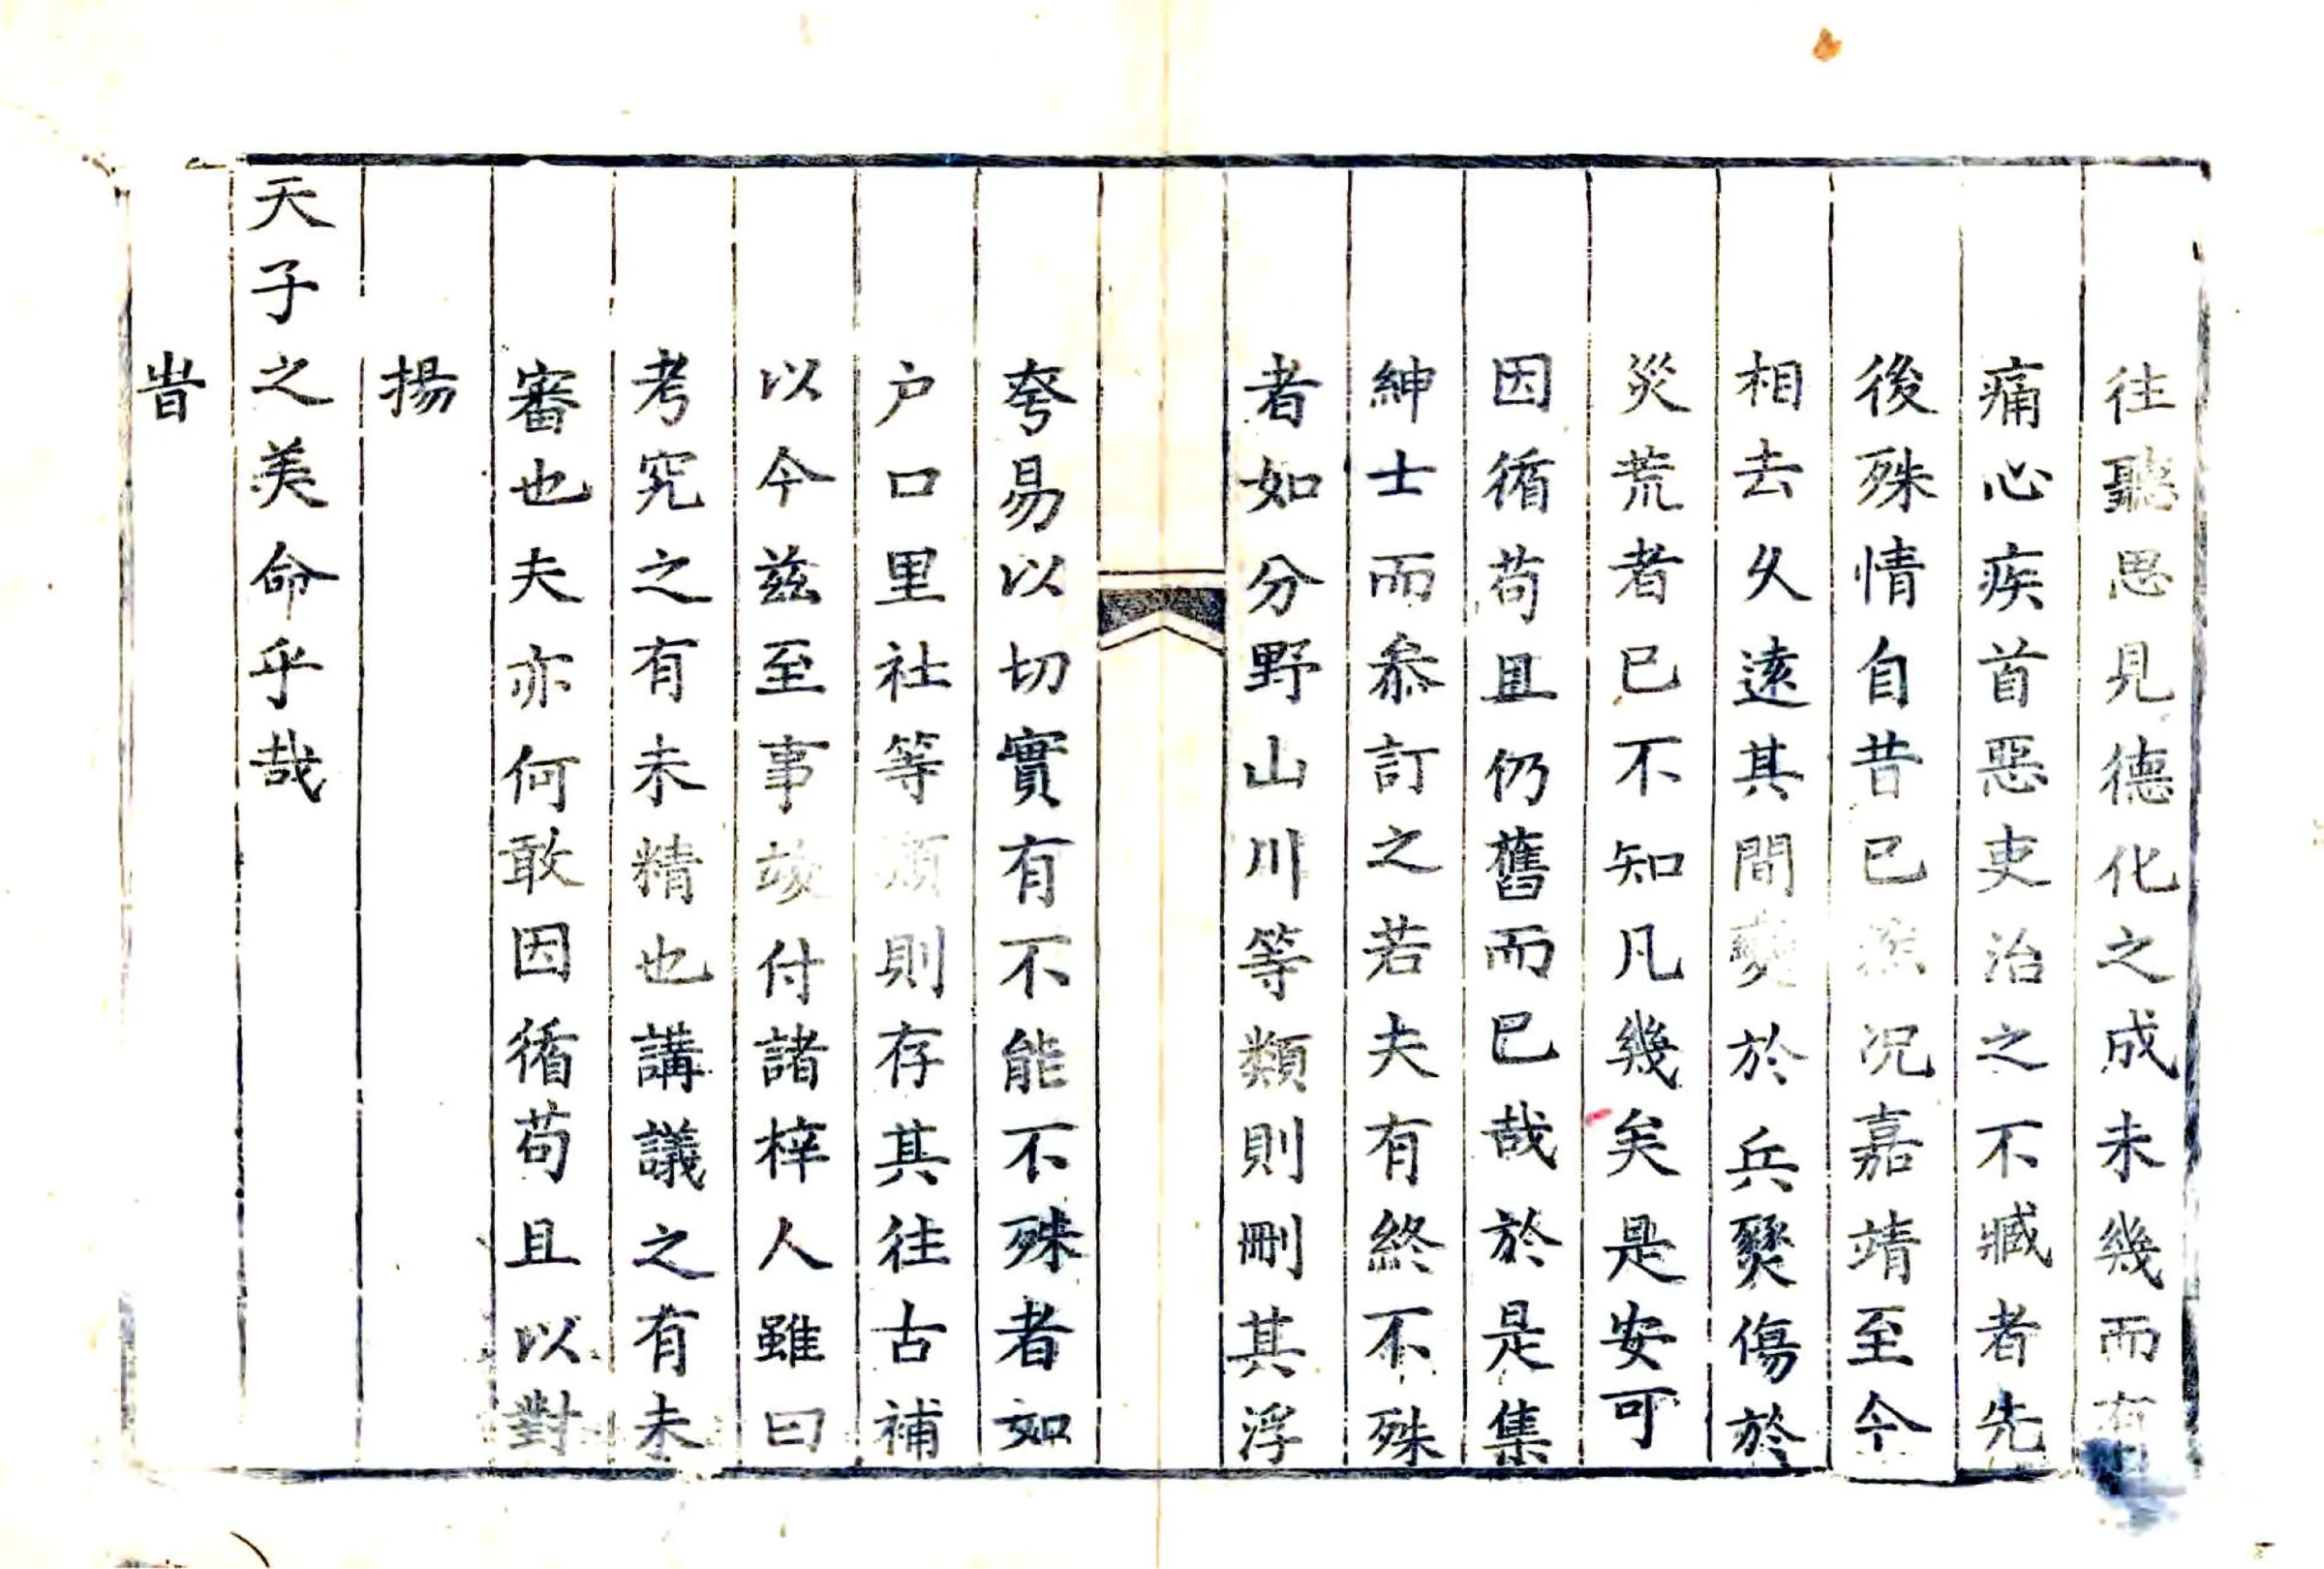 往聽思見德化之成未幾而有
痛心疾首惡吏治之不臧者先
後殊情自昔已然况嘉靖至今
相去久遠其間變於兵燹傷於
災荒者已不知凡幾矣是安可
因循苟且仍舊而已哉於是集
紳士而叅訂之若夫有終不殊
者如分野山川等類則刪其浮
夸易以切實有不能不殊者如
户口里社等類則存其往古補
以今兹至事竣付諸梓人雖曰
考究之有未精也講議之有未
審也夫亦何敢因循苟且以對
揚
天子之美命乎哉
旹